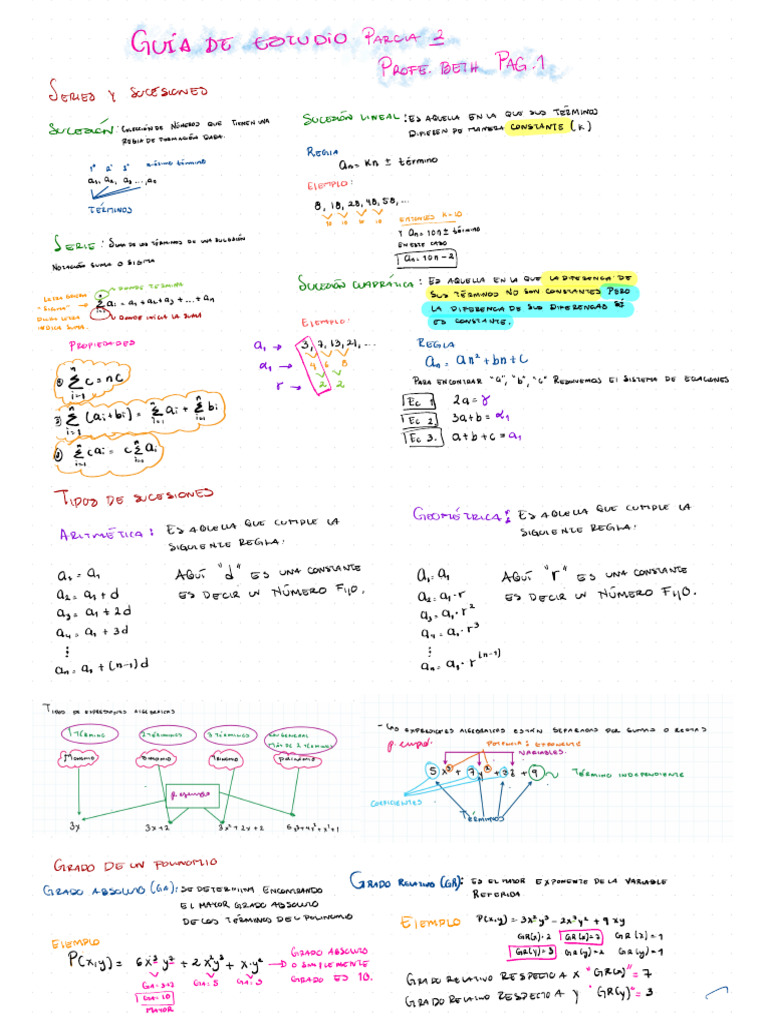 GUÍA DE ESTUDIO PARCIAL 2
PROFE. BETH PAG. 1
SERIES Y SUCESIONES
SUCESIÓN: COLECCIÓN DE NÚMEROS QUE TIENEN UNA
REGLA DE FORMACIÓN DADA.
1° 2° 3° enésimo término
a₁, a₂, a₃ ..., aₙ
TÉRMINOS
SERIE: SUMA DE LOS TÉRMINOS DE UNA SUCESIÓN
NOTACIÓN SUMA O SIGMA
DONDE TERMINA
LETRA GRIEGA
"SIGMA"
DICHA LETRA
INDICA SUMA.
Σ aᵢ = a₁ + a₂ + a₃ + ... + aₙ
DONDE INICIA LA SUMA
PROPIEDADES
① Σ c = nc
n
i=1
② Σ (aᵢ + bᵢ) = Σ aᵢ + Σ bᵢ
n
i=1
③ Σ c aᵢ = c Σ aᵢ
n
i=1
SUCESIÓN LINEAL: ES AQUELLA EN LA QUE SUS TÉRMINOS
DIFIEREN DE MANERA CONSTANTE (K)
REGLA
aₙ = Kn ± término
EJEMPLO:
8, 18, 28, 48, 58, ...
10 10 10 10
ENTONCES K=10
Y aₙ = 10n ± término
EN ESTE CASO
aₙ = 10n - 2
SUCESIÓN CUADRÁTICA: ES AQUELLA EN LA QUE LA DIFERENCIA DE
SUS TÉRMINOS NO SON CONSTANTES PERO
LA DIFERENCIA DE SUS DIFERENCIAS SÍ
ES CONSTANTE.
EJEMPLO:
a₁ → 3, 7, 13, 21, ...
α₁ → 4 6 8
r → 2 2
REGLA
aₙ = an² + bn + c
PARA ENCONTRAR "a", "b", "c" RESOLVEMOS EL SISTEMA DE ECUACIONES
Ec 1 2a = r
Ec 2. 3a + b = α₁
Ec 3. a + b + c = a₁
TIPOS DE SUCESIONES
ARITMÉTICA: ES AQUELLA QUE CUMPLE LA
SIGUIENTE REGLA:
a₁ = a₁
a₂ = a₁ + d
a₃ = a₁ + 2d
a₄ = a₁ + 3d
⋮
aₙ = a₁ + (n-1)d
AQUÍ "d" ES UNA CONSTANTE
ES DECIR UN NÚMERO FIJO.
GEOMÉTRICA: ES AQUELLA QUE CUMPLE LA
SIGUIENTE REGLA:
a₁ = a₁
a₂ = a₁·r
a₃ = a₁·r²
a₄ = a₁·r³
⋮
aₙ = a₁·r⁽ⁿ⁻¹⁾
AQUÍ "r" ES UNA CONSTANTE
ES DECIR UN NÚMERO FIJO.
TIPOS DE EXPRESIONES ALGEBRAICAS
1 TÉRMINO 2 TÉRMINOS 3 TÉRMINOS EN GENERAL
MÁS DE 2 TÉRMINOS
MONOMIO BINOMIO TRINOMIO POLINOMIO
p. ejemplo
3x 3x+2 3x²+2x+2
- Las EXPRESIONES ALGEBRAICAS ESTÁN SEPARADAS POR SUMAS O RESTAS
p. ejempl. POTENCIA: EXPONENTE
VARIABLES
TÉRMINO INDEPENDIENTE
COEFICIENTES
TÉRMINOS
GRADO DE UN POLINOMIO
GRADO ABSOLUTO (GA): SE DETERMINA ENCONTRANDO
EL MAYOR GRADO ABSOLUTO
DE LOS TÉRMINOS DEL POLINOMIO
EJEMPLO
GRADO ABSOLUTO
O SIMPLEMENTE
GRADO ES 10.
GA: 5 GA: 3
GA: 10
MAYOR
GRADO RELATIVO (GR): ES EL MAYOR EXPONENTE DE LA VARIABLE
REFERIDA
EJEMPLO
GR(y)=3 GR(y)=2 GR(y)=1
GRADO RELATIVO RESPECTO A X "GR(x)" = 7
GRADO RELATIVO RESPECTO A y "GR(y)" = 3